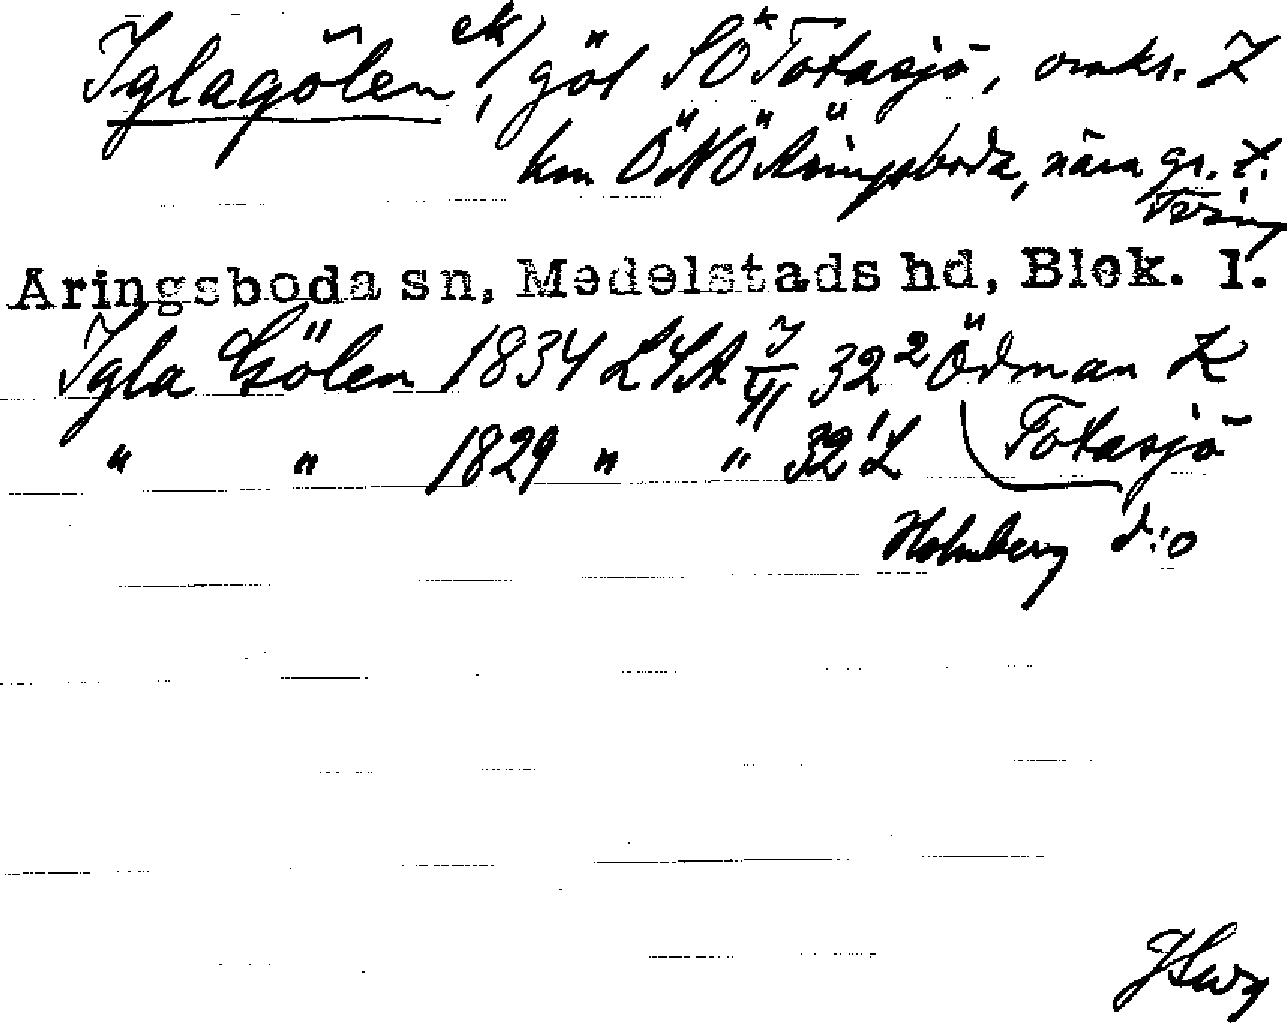 Iglagölen ek/, göl SÖ Totasjö, omkr. 7
km ÖNÖ Åringsboda, nära gr. t.
Tving
Aringsboda sn, Medelstads hd, Blek. l.
Igla Gölen 1834 LSA 32² Ödman K
" " 1829 " " 32¹ L Totasjö
Holmberg d:o